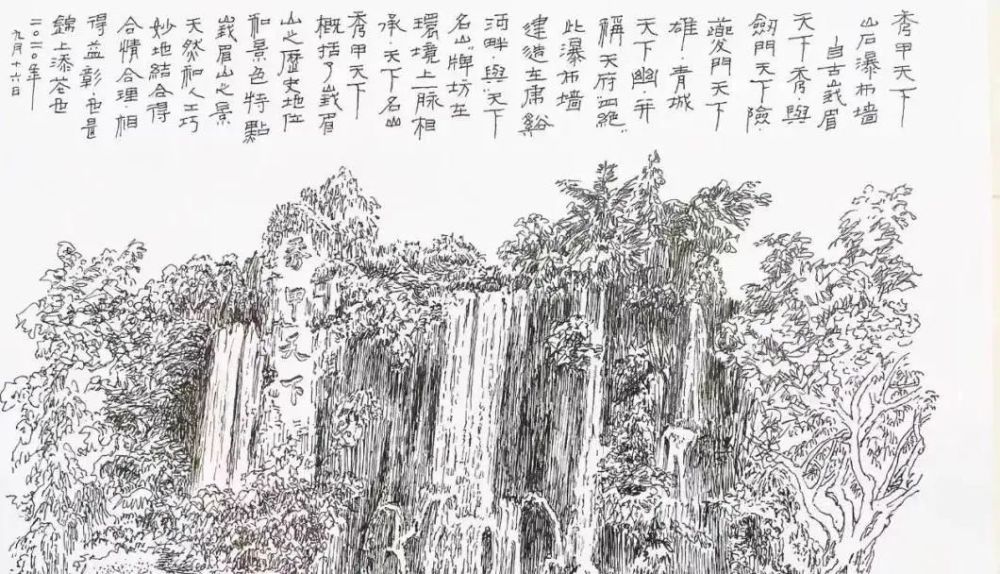 秀甲天下
山石瀑布墙
自古峩眉
天下秀·與
劔門天下險·
夔門天下
雄·青城
天下幽并
稱“天府四絕”
此瀑布墙
建造在虎谿
河畔·與“天下
名山”牌坊在
環境上一脈相
承·天下名山
秀甲天下
概括了峩眉
山之歷史地位
和景色特點
峩眉山之景
天然和人工巧
妙地結合得
合情合理·相
得益彰·也是
錦上添花也
二〇二〇年
九月十六日
秀甲天下